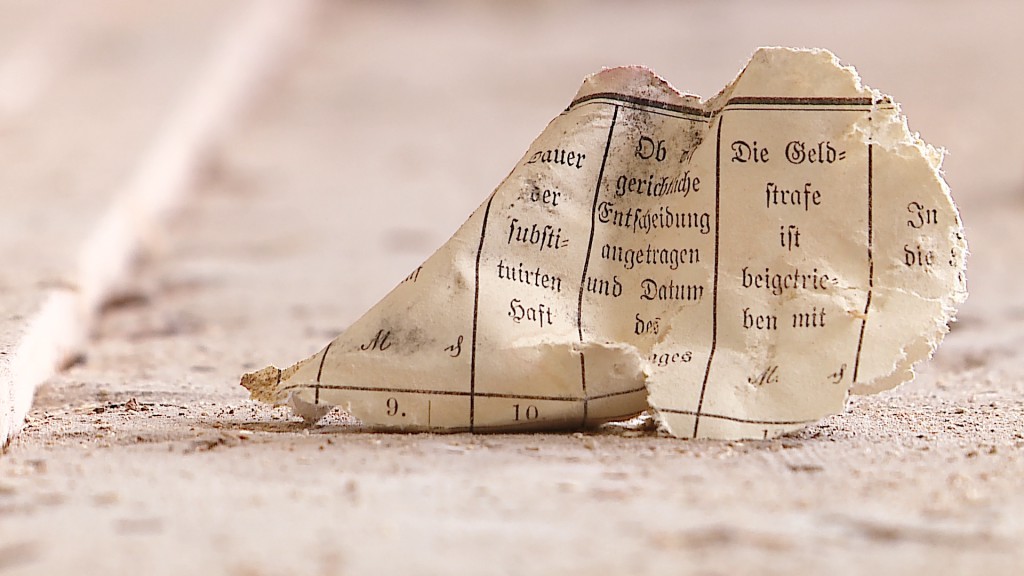 M ₰
Dauer
der
ſubſti-
tuirten
Haft
Ob
gerichtliche
Entſcheidung
angetragen
und Datum
des
ages
Die Geld-
ſtrafe
iſt
beigetrie-
ben mit
M. ₰
In
die
9.
10